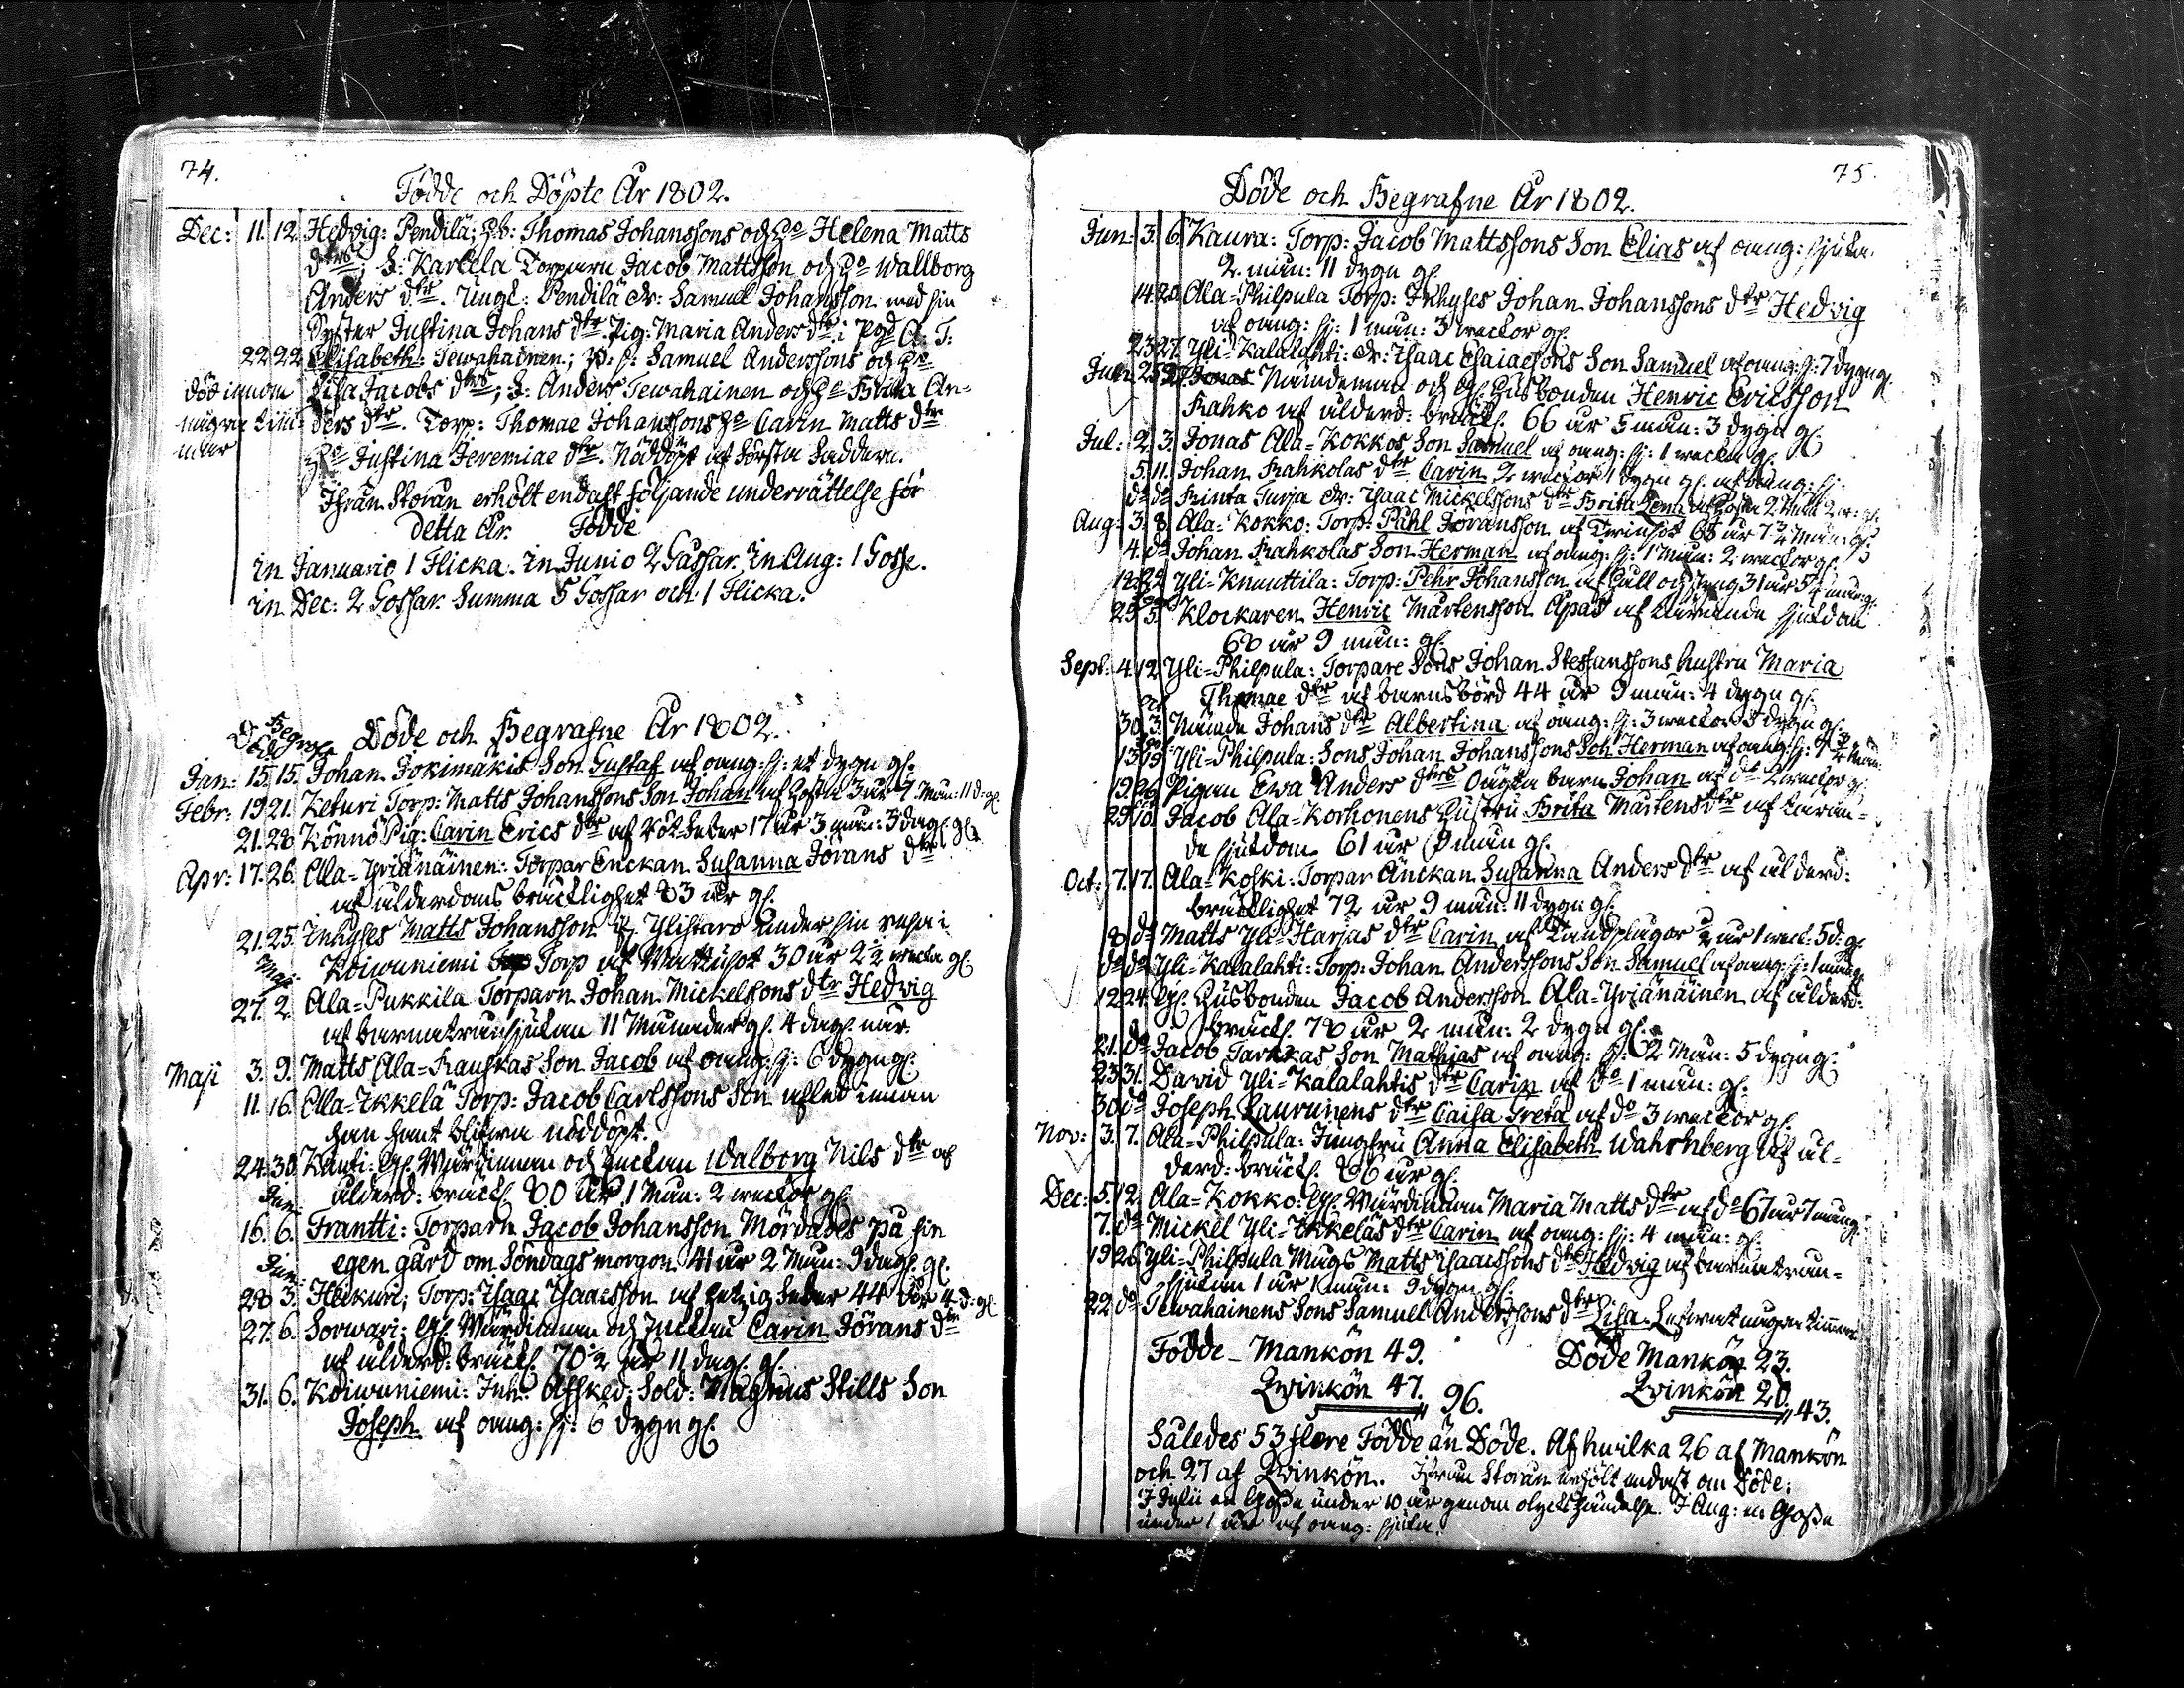 74.
Födde och Döpte År 1802.
Dec: 11. 12. Hedvig: Pendilä; Thomas Johanssons och Helena Matts
dtrs; F: Karhila Torparn Jacob Mattsson och Wallborg
Anders dtr. Ungk: Pendilä Dr: Samuel Johansson med sin
Syster Justina Johans dtr Pig: Maria Anders dtr i Pgd A: T:
22. 22. Elisabeth: Tewahainen; Samuel Anderssons och
död innom Lisa Jacobs dtrs; F: Anders Tewahainen och Brita An-
några tim- ders dtr. Torp: Thomae Johanssons Carin Matts dtr
mar Justina Jeremiae dtr. Nöddöpt af första Faddern.
Ifrån Storån erhölt endast följande underrättelse för
detta År. Födde
in Januario 1 Flicka. in Junio 2 Gåssar. in Aug: 1 Gosse.
in Dec: 2 Gossar. Summa 5 Gossar och 1 Flicka.
Död Begrafn Döde och Begrafne År 1802.
Jan: 15. 15. Johan Jokimäkis Son Gustaf af oang: sj: et dygn gl.
Febr: 19. 21. Keturi Torp: Matts Johanssons Son Johan af Hosta 3 år 7 Mån: 11 d: gl.
21. 28. Könnö Pig: Carin Erics dtr af Röt feber 17 år 3 mån: 3 dag. gl
Apr: 17. 26. Ala-Yrjänäinen: Torpar Enckan Susanna Jörans dtr
af ålderdoms bräcklighet 83 år gl.
21. 25. Inhyses Matts Johansson if. Ylistaro under sin resa i
Maji Koiwuniemi Torp af Wattusot 30 år 2 1/2 wecka gl.
27. 2. Ala-Pukkila Torparn Johan Mickelssons dtr Hedvig
af barnatrånsjukan 11 Månader gl. 4 dag. når.
Maji 3. 9. Matts Ala-Rauskas Son Jacob af oang: sj: 6 dygn gl.
11. 16. Ala-Ikkelä Torp: Jacob Carlssons Son afled innan
han hant blifwa nöddöpt.
24. 30. Kauti: Gl. Wärdinnan och Enckan Walborg Nils dtr af
Jun: ålderd: bräckl. 80 År 1 Mån: 2 weckor gl.
16. 6. Frantti: Torparn Jacob Johansson Mördades på sin
Jun: egen gård om Söndags morgon 41 år 2 Mån: 9 dag. gl.
28. 3. Heikuri; Torp: Isaac Isaacsson af hetzig feber 44 år 4 d: gl
27. 6. Sorwari: Gl. Wärdinnan och Enckan Carin Jörans dtr
af ålderd: bräckl. 70 1/2 år 11 dag. gl.
31. 6. Koiwuniemi: Inh: Afsked: Sold: Magnus Stills Son
Joseph af oang: sj: 6 dygn gl.
75.
Döde och Begrafne År 1802.
Jun: 3. 6. Kaura: Torp: Jacob Mattssons Son Elias af oang: sjuka.
2 mån: 11 dygn gl.
14. 20. Ala-Philpula Torp: Inhyses Johan Johanssons dtr Hedvig
af oang: sj: 1 mån: 3 weckor gl.
23. 27. Yli-Kalalahti: Dr: Isaac Esaiaesons Son Samuel af oang: sj: 7 dygn gl.
25. 27. Jonas Nämdeman och Gl. Husbonden Henric Ericsson
Rahko af ålderd: bräckl. 66 år 5 mån: 3 dygn gl.
Jul: 2. 3. Jonas Ala-Kokkos Son Samuel af oang: sj: 1 wecka gl.
5. 11. Johan Rahkolas dtr Carin 2 weckor 1 dygn gl. af oang: sj:
do do Rinta Turja Dr: Isaac Mickelssons dtr Brita Lena af Hosta
Aug: 3. 8. Ala-Kokko: Torp: Påhl Jöransson af Twinsot 65 år 7 1/2 Mån: gl.
4. do Johan Rahkolas Son Herman af oang: sj: 1 Mån: 2 weckor gl.
12. 22. Yli-Knuuttila: Torp: Pehr Johansson af Håll och styng 31 år
29. 5. Klockaren Henric Mårtensson Apas af tärande sjukdom
68 år 9 mån: gl.
Sept: 4. 12. Yli-Philpula: Torpare Sons Johan Steffanssons hustru Maria
Thomae dtr af barnsbörd 44 år 9 mån: 4 dygn gl.
30. 3. Nåndu Johans dtr Albertina af oang: sj: 3 weckor 3 dygn gl.
13. 19. Yli-Philpula: Sons Johan Johanssons Son Herman af oang: sj:
19. 26. Pigan Ewa Anders dtrs Oägta barn Johan af do 2 weckor gl.
29. 10. Jacob Ala-Korhonens Hustru Brita Mårtens dtr af täran-
de sjukdom 61 år 9 mån gl.
Oct: 7. 17. Ala-Koski: Torpar Änckan Susanna Anders dtr af ålderd:
bräcklighet 72 år 9 mån: 11 dygn gl.
18. do Matts Yli-Harjas dtr Carin af Tandplågor
do do Yli-Kalalahti: Torp: Johan Anderssons Son Samuel af oang: sj: 1 mån gl.
12. 24. Gl. Husbonden Jacob Andersson Ala-Yrjänäinen af ålderd:
bräckl. 78 år 2 mån: 2 dygn gl.
21. do Jacob Tarkkas Son Mathias af oang: sj: 2 Mån: 5 dygn gl:
23. 31. David Yli-Kalalahtis dtr Carin af do 1 mån: gl.
30. do Joseph Laurunens dtr Caisa Greta af do 3 weckor gl.
Nov: 3. 7. Ala-Philpula: Jungfru Anna Elisabeth Wahrnberg af ål-
derd: bräckl. 86 år gl.
Dec: 5. 12. Ala-Kokko: Gl. Wärdinnan Maria Matts dtr af do 67 år 7 mån gl.
7. do Mickel Yli-Ikkeläs dtr Carin af oang: sj: 4 mån: gl.
19. 26. Yli-Philpula Mågs Matts Isaacssons dtr Hedvig af barnatrån-
sjukan 1 år 1 mån: 9 dygn gl.
22. do Tewahainens Sons Samuel Anderssons dtr Lisa. Lefwat några timmar
Födde - Mankön 49. Döde Mankön 23.
Qvinkön 47. 96. Qvinkön 20. 43.
Således 53 flere Födde än Döde. Af hwilka 26 af Mankön
och 27 af Qvinkön. Ifrån Storån erhölt endast om Döde:
I Julii en Gosse under 10 år genom olyckshändelse. I Aug: en Gosse
under 1 år af oang: sjuka.